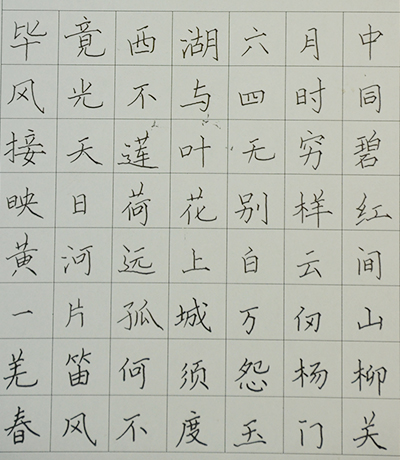 毕竟西湖六月中
风光不与四时同
接天莲叶无穷碧
映日荷花别样红
黄河远上白云间
一片孤城万仞山
羌笛何须怨杨柳
春风不度玉门关